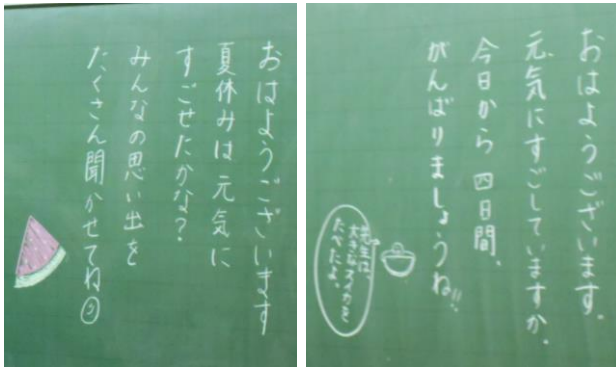 おはようございます
夏休みは元気に
すごせたかな？
みんなの思い出を
たくさん聞かせてね
おはようございます。
元気にすごしていますか。
今日から四日間、
がんばりましょうね!!
先生は
大きなスイカを
たべたよ。